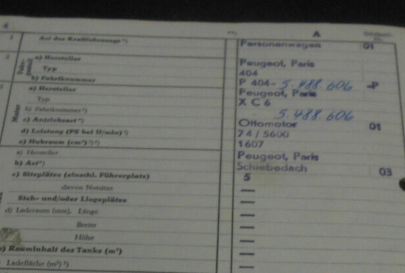 A
1 Art des Kraftfahrzeugs¹) Personenwagen 01
a) Hersteller Peugeot, Paris
Typ 404
b) Fabriknummer P 404- 5.488.606 -P
a) Hersteller Peugeot, Paris
Typ X C 6
b) Fabriknummer³) 5.488.606
c) Antriebsart Ottomotor 01
d) Leistung (PS bei U/min) 74 / 5600
e) Hubraum (cm³) 1607
a) Hersteller Peugeot, Paris
b) Art Schiebedach 03
c) Sitzplätze (einschl. Führerplatz) 5
davon Notsitze —
Steh- und/oder Liegeplätze —
d) Laderaum (mm), Länge —
Breite —
Höhe —
e) Rauminhalt des Tanks (m³) —
Ladefläche (m²) —